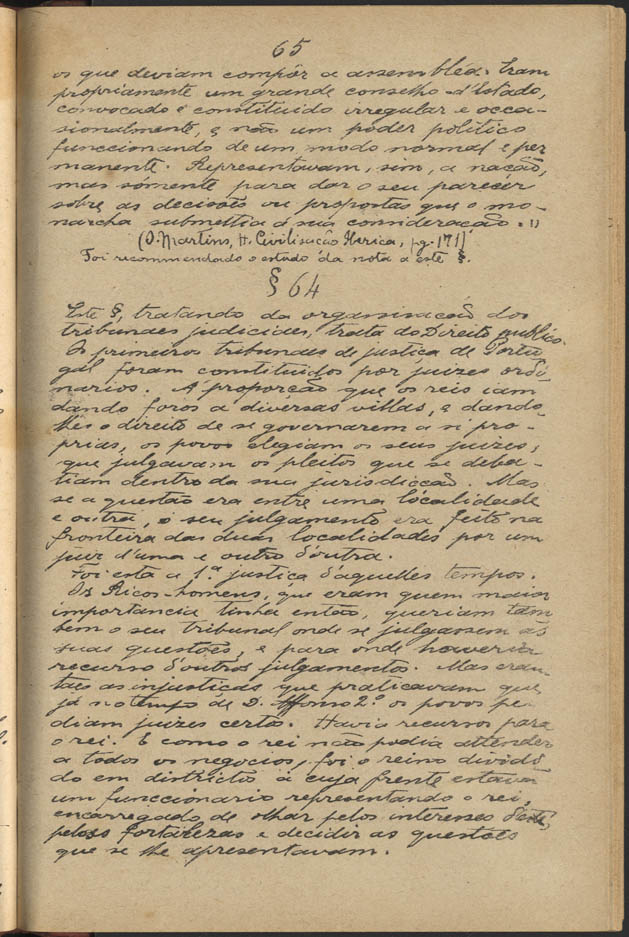 65
os que deviam compôr a assembléa. Eram
propriamente um grande conselho d'Estado,
convocado e constituido irregular e occa-
sionalmente, e não um poder politico
funccionando de um modo normal e per
manente. Representavam, sim, a nação,
mas sómente para dar o seu parecer
sobre as decisões ou propostas que o mo-
narcha submettia á sua consideração." 1)
(O. Martins, H. Civilisação Iberica, pg. 171)
Foi recommendado o estudo da nota a este §.
§ 64
Este §, tratando da organisação dos
tribunaes judiciaes, trata do Direito publico.
Os primeiros tribunaes de justiça de Portu
gal foram constituidos por juizes ordi
narios. Á proporção que os reis iam
dando foros a diversas villas, e dando
lhes o direito de se governarem a si pro-
prias, os povos elegiam os seus juizes,
que julgavam os pleitos que se deba-
tiam dentro da sua jurisdicção. Mas
se a questão era entre uma localidade
e outra, o seu julgamento era feito na
fronteira das duas localidades por um
juiz d'uma e outro d'outra.
Foi esta a 1ª justiça d'aquelles tempos.
Os Ricos-homens, que eram quem maior
importancia tinha então, queriam tam
bem o seu tribunal onde se julgassem as
suas questões, e para onde haveria
recurso d'outros julgamentos. Mas eram
taes as injustiças que praticavam que
já no tempo de D. Affonso 2º os povos pe-
diam juizes certos. Havia recursos para
o rei. E como o rei não podia attender
a todos os negocios, foi o reino dividi
do em districtos á cuja frente estava
um funccionario representando o rei,
encarregado de olhar pelos interesses d'este,
pelas fortalezas e decidir as questões
que se lhe apresentavam.